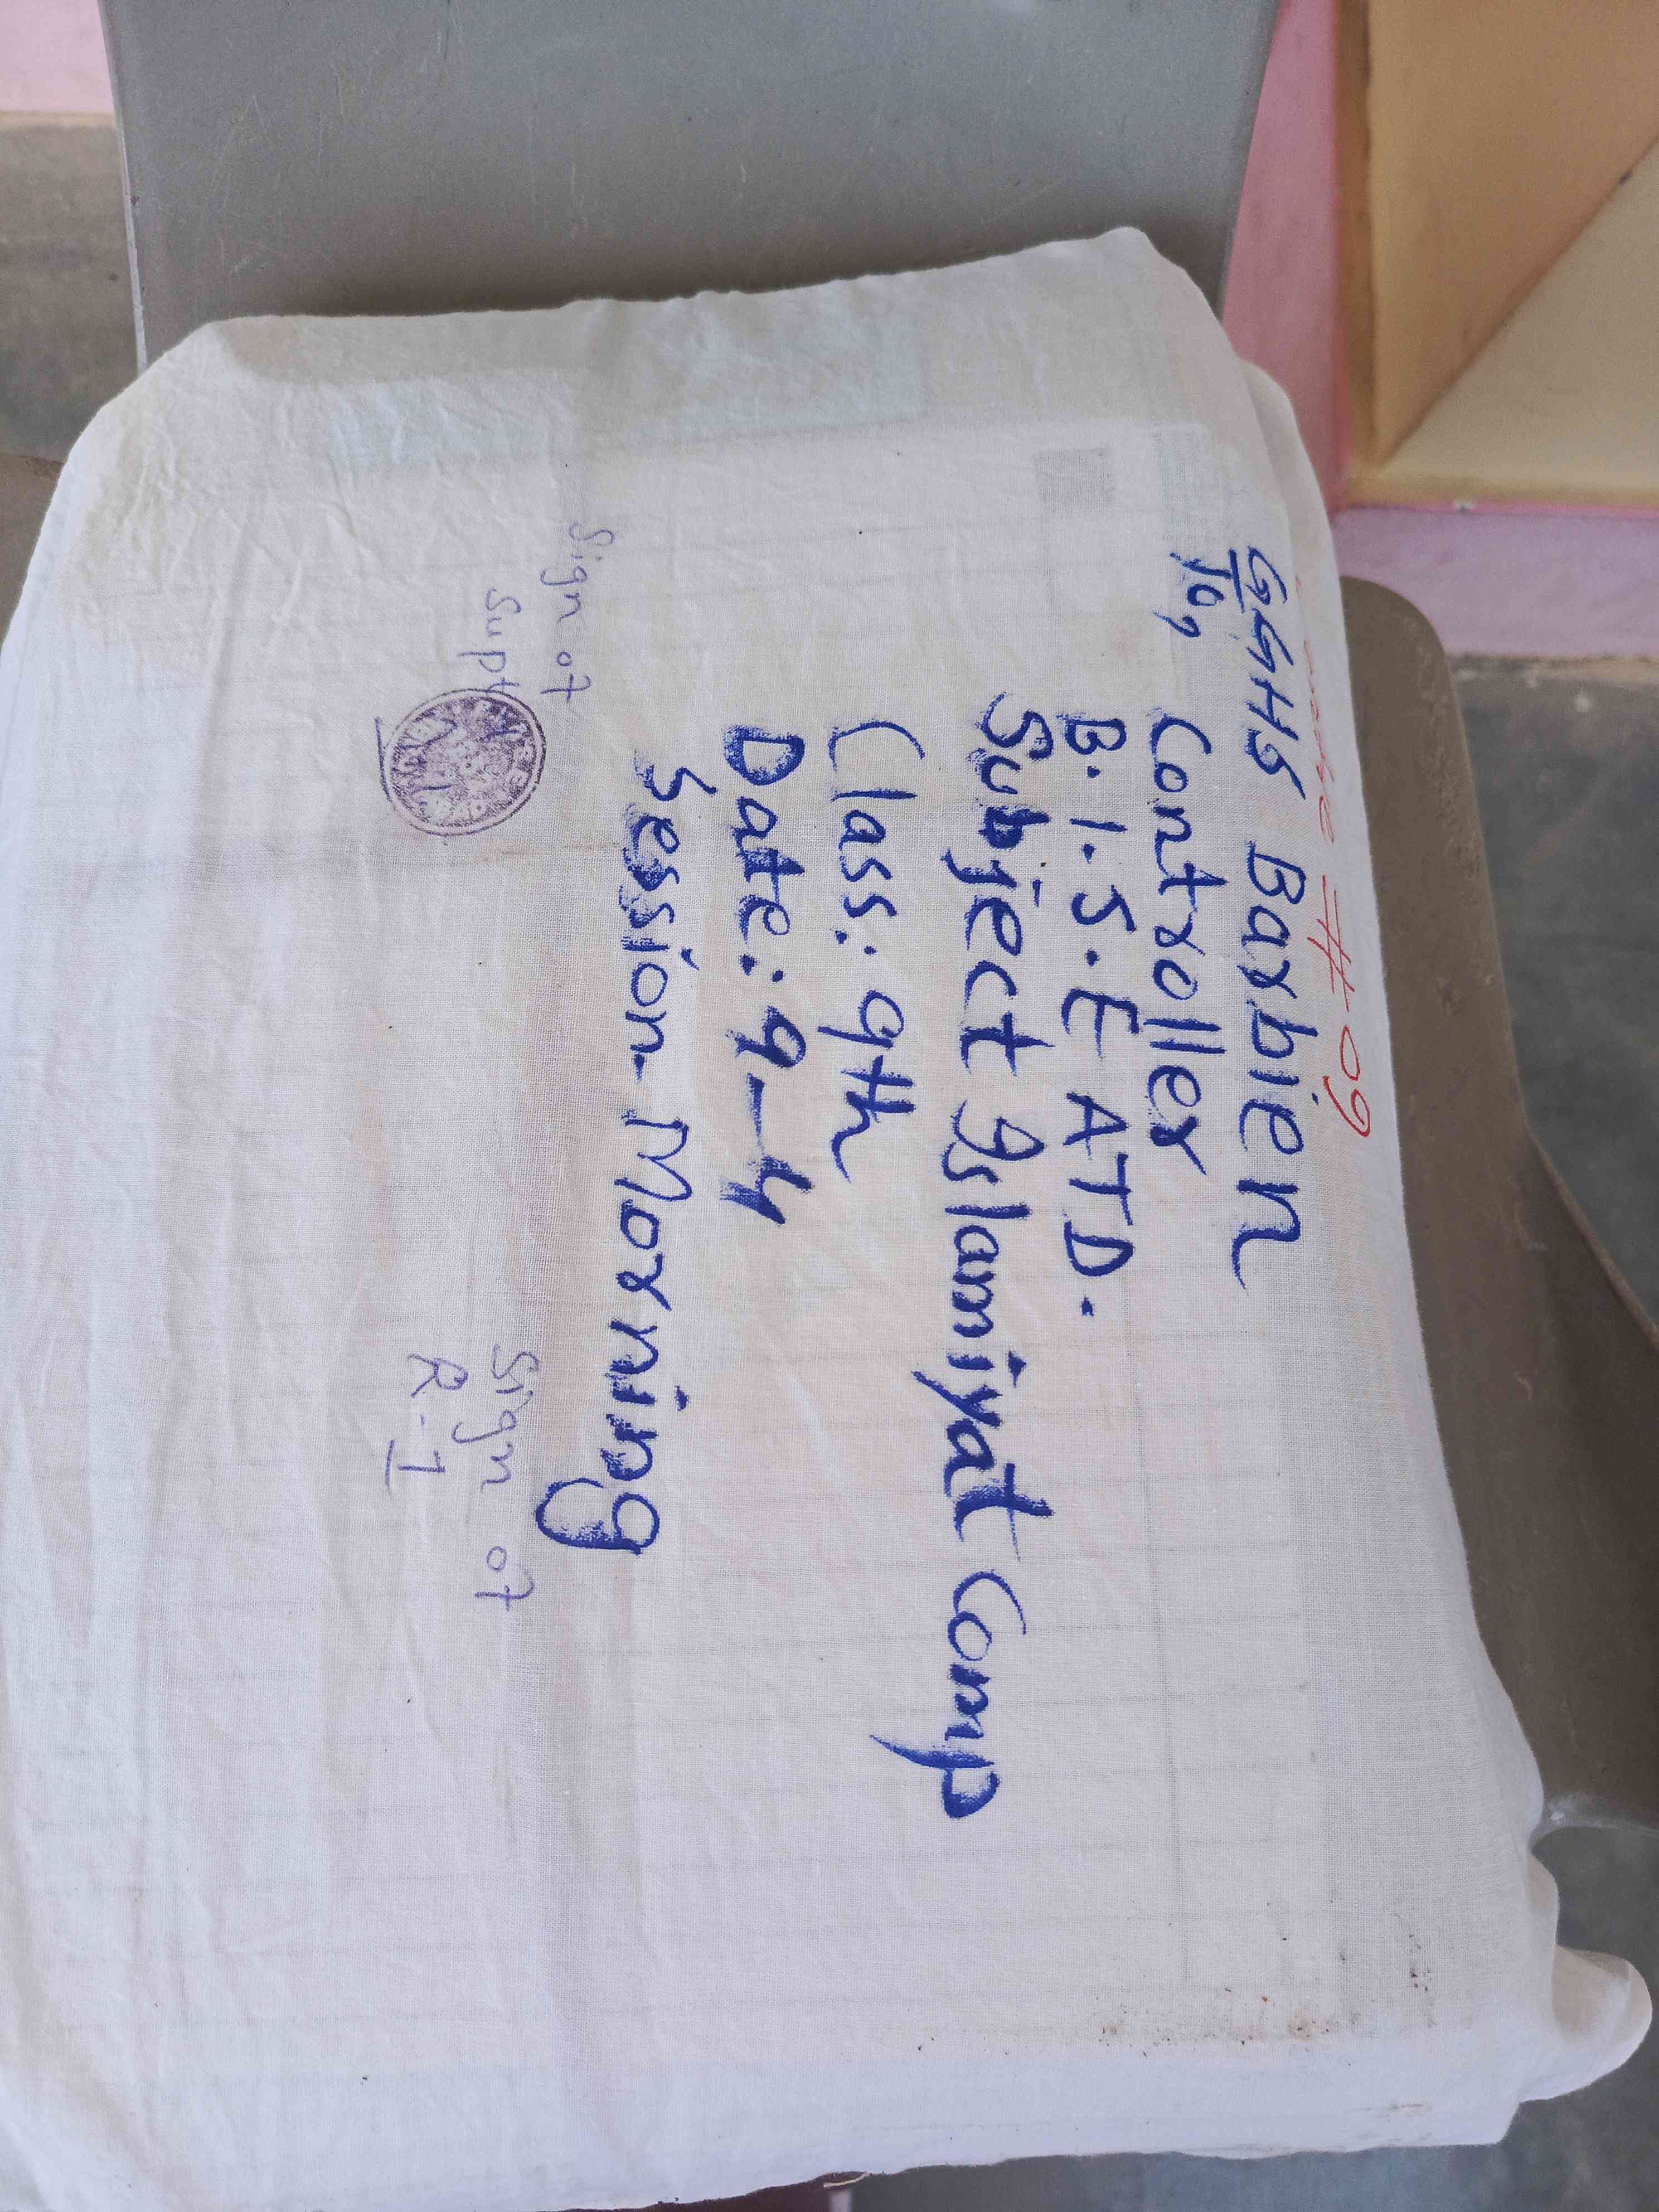 # 09
GGHS Barbien
To,
Controller
B.I.S.E ATD.
Subject Islamiyat Comp
Class: 9th
Date: 9-4
Session Morning
Sign of
Supt
Sign of
R-I